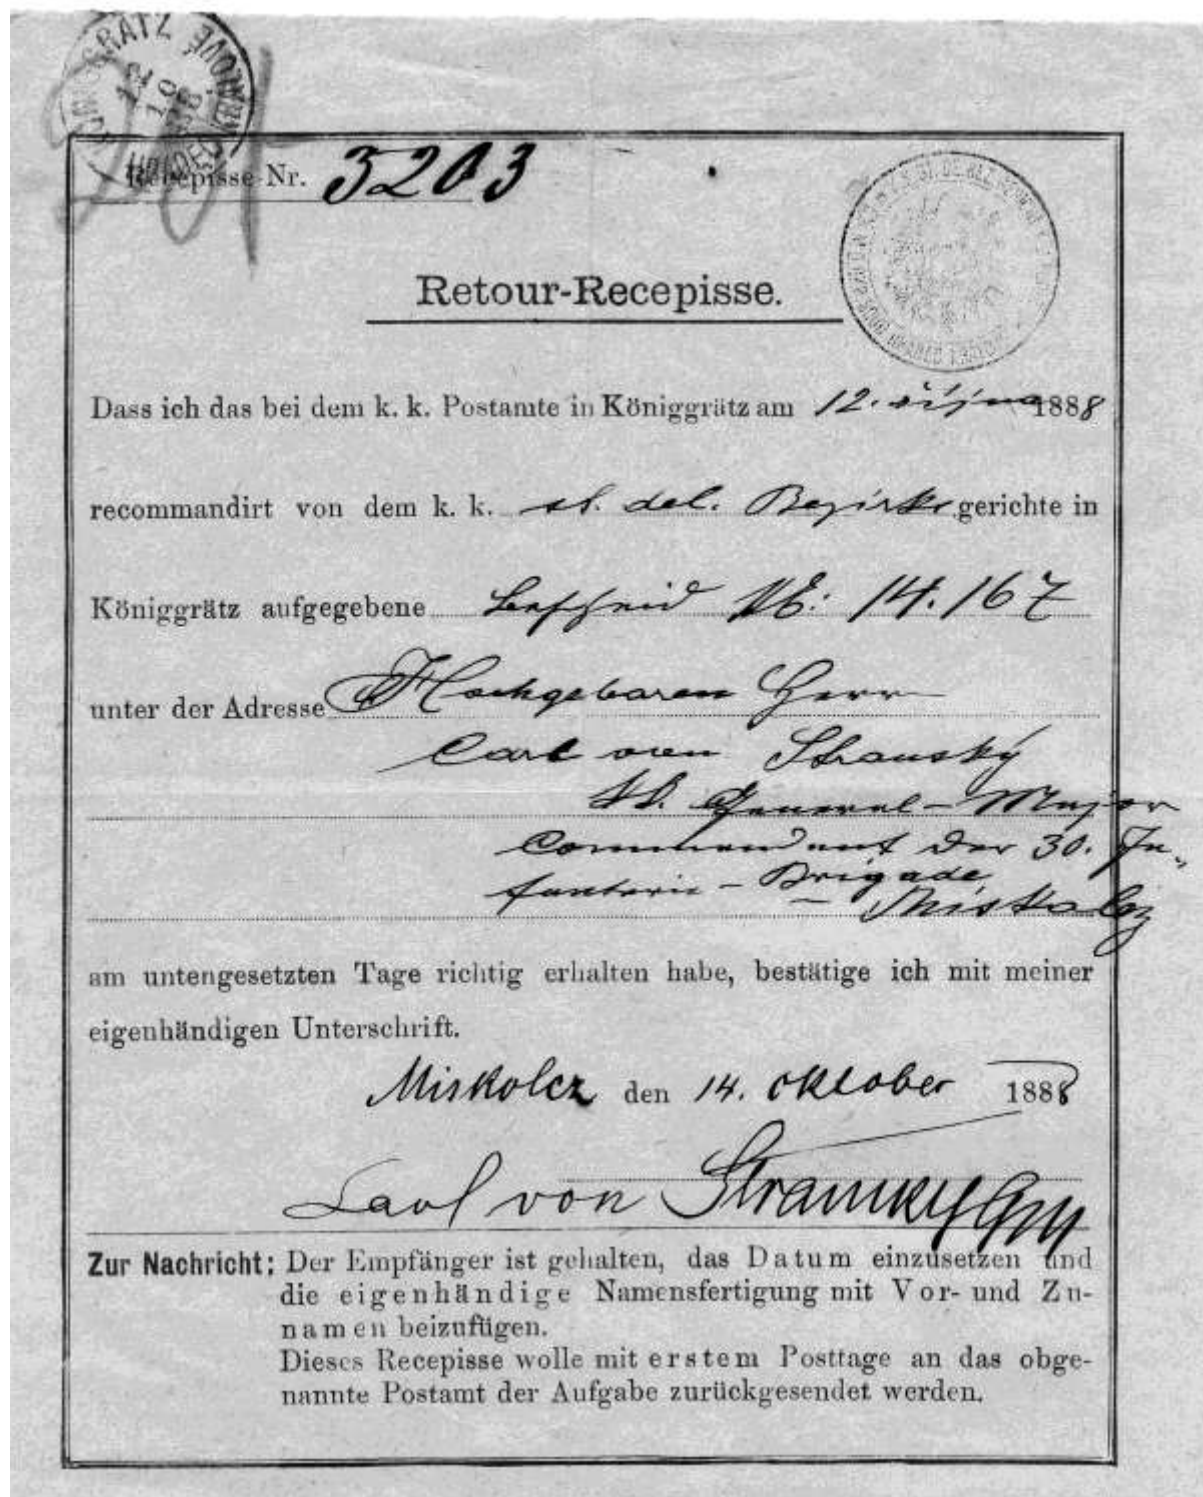 KÖNIGGRATZ
12
10
88
Recepisse-Nr. 3203
Retour-Recepisse.
Dass ich das bei dem k. k. Postamte in Königgrätz am 12. října 1888
recommandirt von dem k. k. st. del. Bezirksgerichte in
Königgrätz aufgegebene Bescheid NE: 14.167
unter der Adresse Hochgeboren Herr
Carl von Stránský
kk. General-Major
Commandant der 30. In-
fanterie-Brigade
Miskolcz
am untengesetzten Tage richtig erhalten habe, bestätige ich mit meiner
eigenhändigen Unterschrift.
Miskolcz den 14. Oktober 1888
Carl von Stransky GM
Zur Nachricht: Der Empfänger ist gehalten, das Datum einzusetzen und
die eigenhändige Namensfertigung mit Vor- und Zu-
namen beizufügen.
Dieses Recepisse wolle mit erstem Posttage an das obge-
nannte Postamt der Aufgabe zurückgesendet werden.